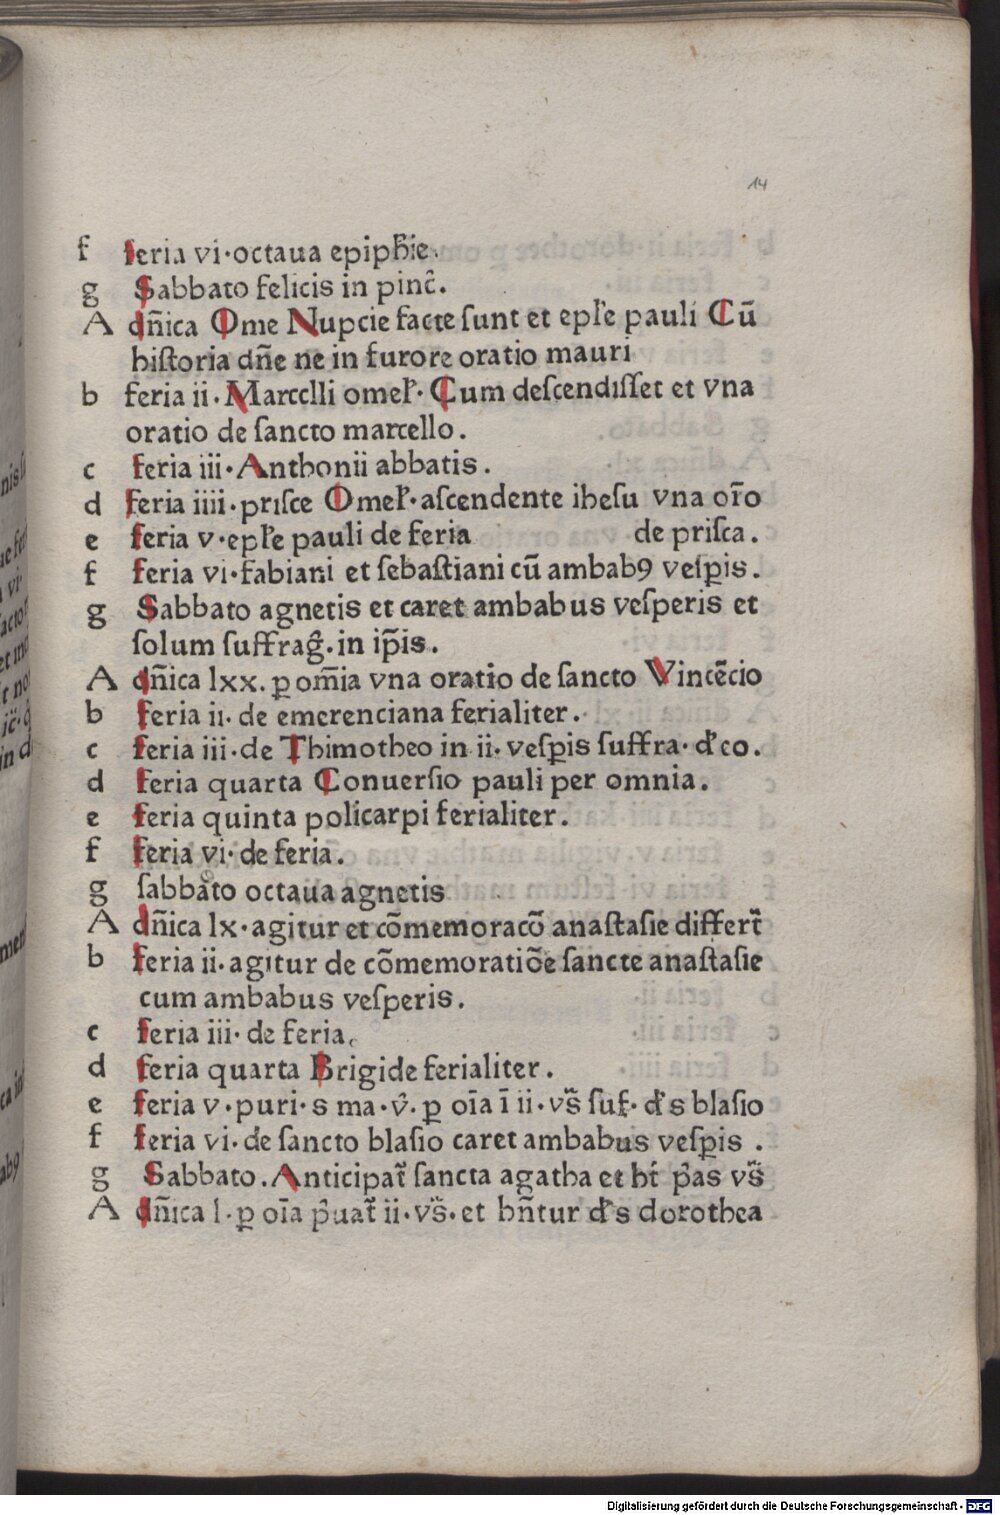 14
f feria vi·octaua epiph̄ie.
g Sabbato felicis in pinc̄.
A dn̄ica Ome Nupcie facte ſunt et epl̄e pauli Cū
hiſtoria dn̄e ne in furore oratio mauri
b feria ii·Marcelli omel̄·Cum deſcendiſſet et vna
oratio de ſancto marcello.
c feria iii·Anthonii abbatis.
d feria iiii·priſce Omel̄·aſcendente iheſu vna or̄o
e feria v·epl̄e pauli de feria de priſca.
f feria vi·fabiani et ſebaſtiani cū ambabꝯ veſꝑis.
g Sabbato agnetis et caret ambabus veſperis et
ſolum ſuffraḡ·in ip̄is.
A dn̄ica lxx·ꝑ om̄ia vna oratio de ſancto Vincēcio
b feria ii·de emerenciana ferialiter.
c feria iii·de Thimotheo in ii·veſꝑis ſuffra·d'co.
d feria quarta Conuerſio pauli per omnia.
e feria quinta policarpi ferialiter.
f feria vi·de feria.
g ſabbato octaua agnetis
A dn̄ica lx·agitur et cōmemoracō anaſtaſie differt᷑
b feria ii·agitur de cōmemoratiōe ſancte anaſtaſie
cum ambabus veſperis.
c feria iii·de feria.
d feria quarta Brigide ferialiter.
e feria v·puri·s ma·v̂·ꝑ oīa ī ii·vs̄ ſuf·d's blaſio
f feria vi·de ſancto blaſio caret ambabus veſꝑis .
g Sabbato.Anticipat᷑ ſancta agatha et ht̄ p̄as vs̄
A dn̄ica l·ꝑ oīa p̄uat᷑ ii·vs̄·et hn̄tur d's dorothea
Digitalisierung gefördert durch die Deutsche Forschungsgemeinschaft - DFG